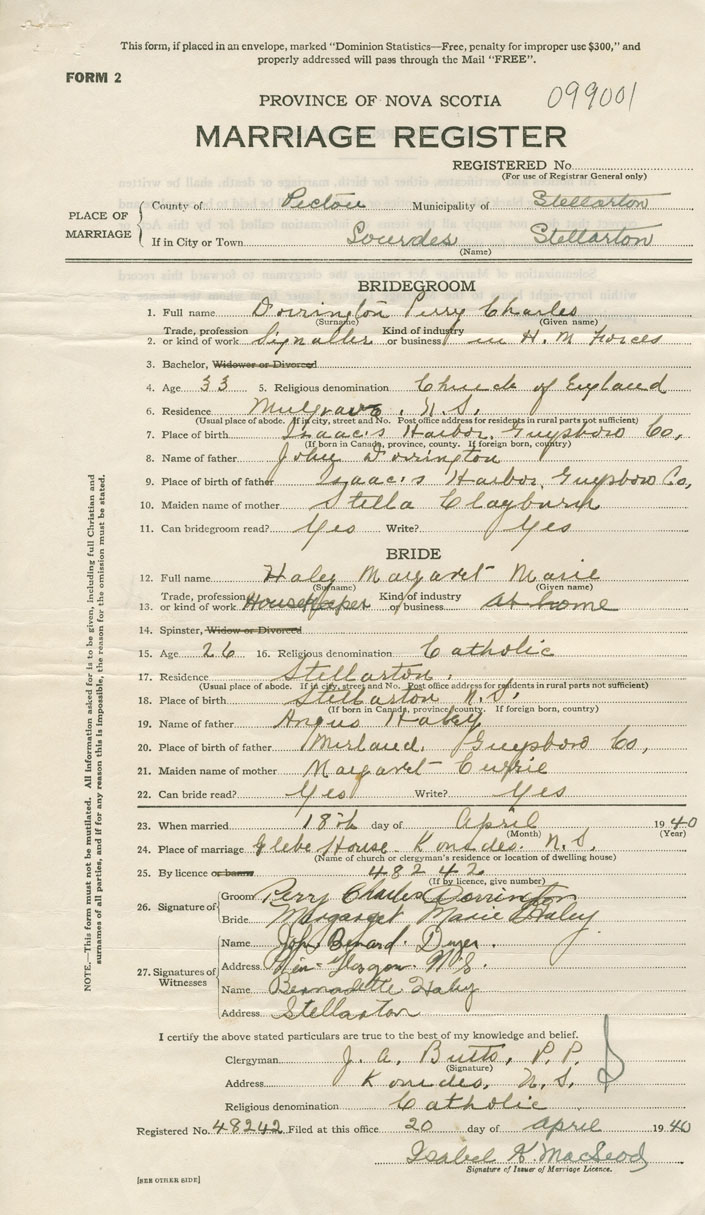 This form, if placed in an envelope, marked "Dominion Statistics—Free, penalty for improper use $300," and
properly addressed will pass through the Mail "FREE".
FORM 2
PROVINCE OF NOVA SCOTIA 099001
MARRIAGE REGISTER
REGISTERED No.
(For use of Registrar General only)
PLACE OF MARRIAGE
County of Pictou Municipality of Stellarton
If in City or Town Lourdes Stellarton
(Name)
BRIDEGROOM
1. Full name Dorrington Perry Charles
(Surname) (Given name)
Trade, profession Kind of industry
2. or kind of work Signaller or business in H. M Forces
3. Bachelor, Widower or Divorced
4. Age 33 5. Religious denomination Church of England
6. Residence Mulgrave, N.S.
(Usual place of abode. If in city, street and No. Post office address for residents in rural parts not sufficient)
7. Place of birth Isaac's Harbor, Guysboro Co,
(If born in Canada, province, county. If foreign born, country)
8. Name of father John Dorrington
9. Place of birth of father Isaac's Harbor, Guysboro Co,
10. Maiden name of mother Stella Clayburn
11. Can bridegroom read? Yes Write? Yes
BRIDE
12. Full name Haley Margaret Marie
(Surname) (Given name)
Trade, profession Kind of industry
13. or kind of work Housekeeper or business at home
14. Spinster, Widow or Divorced
15. Age 26 16. Religious denomination Catholic
17. Residence Stellarton,
(Usual place of abode. If in city, street and No. Post office address for residents in rural parts not sufficient)
18. Place of birth Stellarton N.S,
(If born in Canada, province, county. If foreign born, country)
19. Name of father Angus Haley
20. Place of birth of father Guysboro Co,
21. Maiden name of mother Margaret Currie
22. Can bride read? Yes Write? Yes
23. When married 18th day of April 1940
(Month) (Year)
24. Place of marriage Glebe House N.S.
(Name of church or clergyman's residence or location of dwelling house)
25. By licence or banns 48242
(If by licence, give number)
26. Signature of
Groom Perry Charles Dorrington
Bride Margaret Marie Haley
27. Signatures of Witnesses
Name Dwyer.
Address Glasgow N.S.
Name Bernadette Haley
Address Stellarton
I certify the above stated particulars are true to the best of my knowledge and belief.
Clergyman J. A. Butts, P. P.
(Signature)
Address N. S.
Religious denomination Catholic
Registered No. 48242 Filed at this office 20 day of April 1940
Isabel K. MacLeod
Signature of Issuer of Marriage Licence.
[SEE OTHER SIDE]
NOTE.—This form must not be mutilated. All Information asked for is to be given, including full Christian and
surnames of all parties, and if for any reason this is impossible, the reason for the omission must be stated.